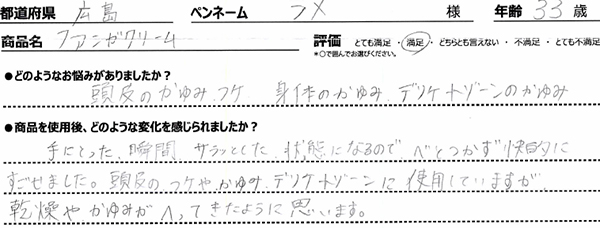 都道府県 広島 ペンネーム フメ 様 年齢 33歳
商品名 ファンガクリーム 評価 とても満足・満足・どちらとも言えない・不満足・とても不満足
*○で囲んでお選びください。
●どのようなお悩みがありましたか?
頭皮のかゆみ、フケ 身体のかゆみ、デリケートゾーンのかゆみ
●商品を使用後、どのような変化を感じられましたか?
手にとった、瞬間、サラッとした、状態になるので、べとつかず快的に
すごせました。頭皮のフケやかゆみ、デリケートゾーンに使用していますが
乾燥やかゆみがへってきたように思います。